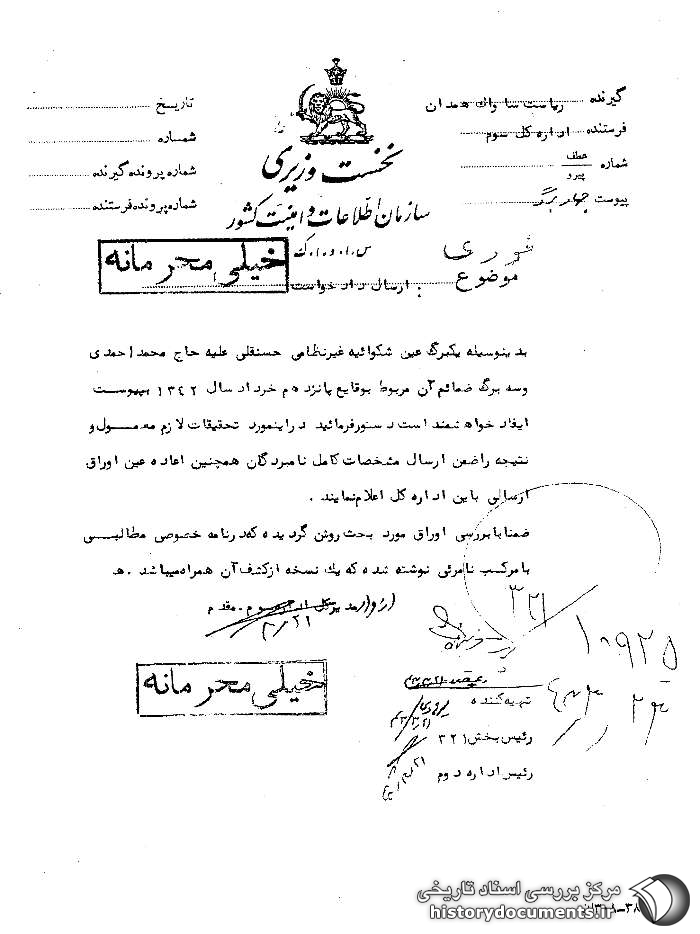 گیرنده ریاست ساواک همدان
فرستنده اداره کل سوم
شماره عطف پیرو
پیوست چهار برگ
نخست وزیری
سازمان اطلاعات و امنیت کشور
س.ا.و.ا.ک
تاریخ
شماره
شماره پرونده گیرنده
شماره پرونده فرستنده
خیلی محرمانه
فوری
موضوع : ارسال دادخواست
بدینوسیله یکبرگ عین شکوائیه غیرنظامی حسنقلی علیه حاج محمد احمدی
وسه برگ ضمائم آن مربوط بوقایع پانزدهم خرداد سال ۱۳۴۲ بپیوست
ایفاد خواهشمند است دستورفرمائید دراینمورد تحقیقات لازم معمول و
نتیجه راضمن ارسال مشخصات کامل نامبردگان همچنین اعاده عین اوراق
ارسالی باین اداره کل اعلام نمایند .
ضمنا بابررسی اوراق مورد بحث روشن گردیده که درنامه خصوصی مطالبی
بامرکب نامرئی نوشته شده که یک نسخه ازکشف آن همراه میباشد . ه
از و ا ر مدیر کل اداره سوم . مقدم
۳/۲۱
۳۲۱
۱۰۹۲۵
۴۳/۳/۲۳
خیلی محرمانه
تهیه کننده
رئیس بخش ۳۲۱
رئیس اداره دوم
مرکز بررسی اسناد تاریخی
historydocuments.ir